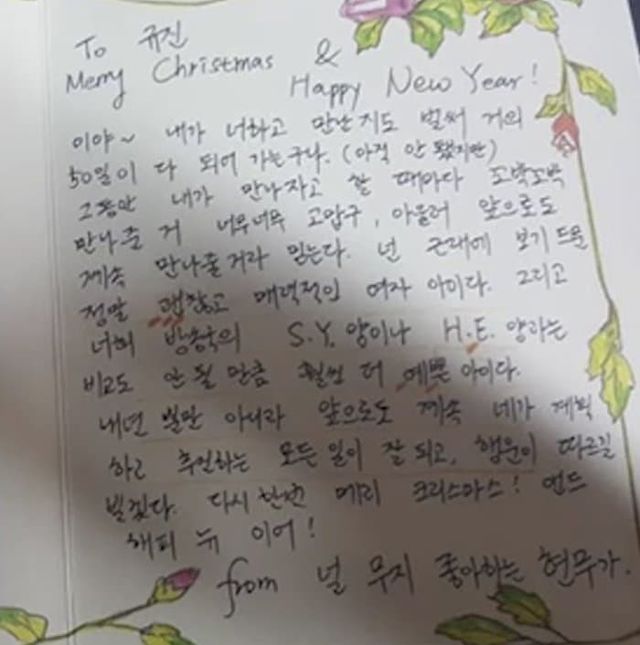 To 규진
Merry Christmas &
Happy New Year!
이야~ 내가 너하고 만난지도 벌써 거의
50일이 다 되어 가는구나. (아직 안 됐지만)
그동안 내가 만나자고 할 때마다 또박또박
만나준 거 너무너무 고맙구, 아울러 앞으로도
계속 만나줄거라 믿는다. 넌 근래에 보기 드문
정말 괜찮고 매력적인 여자 아이다. 그리고
너희 방송국의 S.Y. 양이나 H.E. 양과는
비교도 안 될 만큼 훨씬 더 예쁜 아이다.
내년 뿐만 아니라 앞으로도 계속 네가 계획
하고 추진하는 모든 일이 잘 되고, 행운이 따르길
빌겠다. 다시 한번 메리 크리스마스! 앤드
해피 뉴 이어!
from 널 무지 좋아하는 현무가.